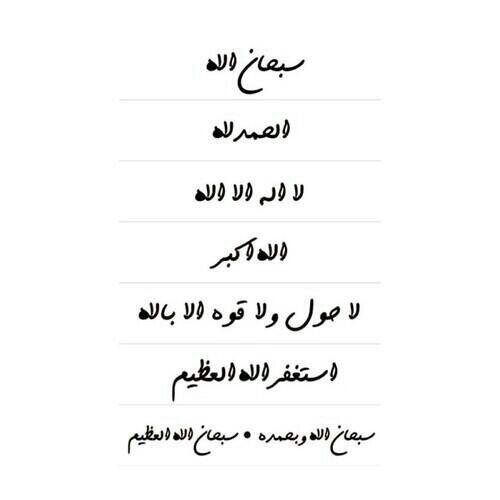 سبحان الله
الحمدلله
لا اله الا الله
الله اكبر
لا حول ولا قوه الا بالله
استغفر الله العظيم
سبحان الله وبحمده • سبحان الله العظيم